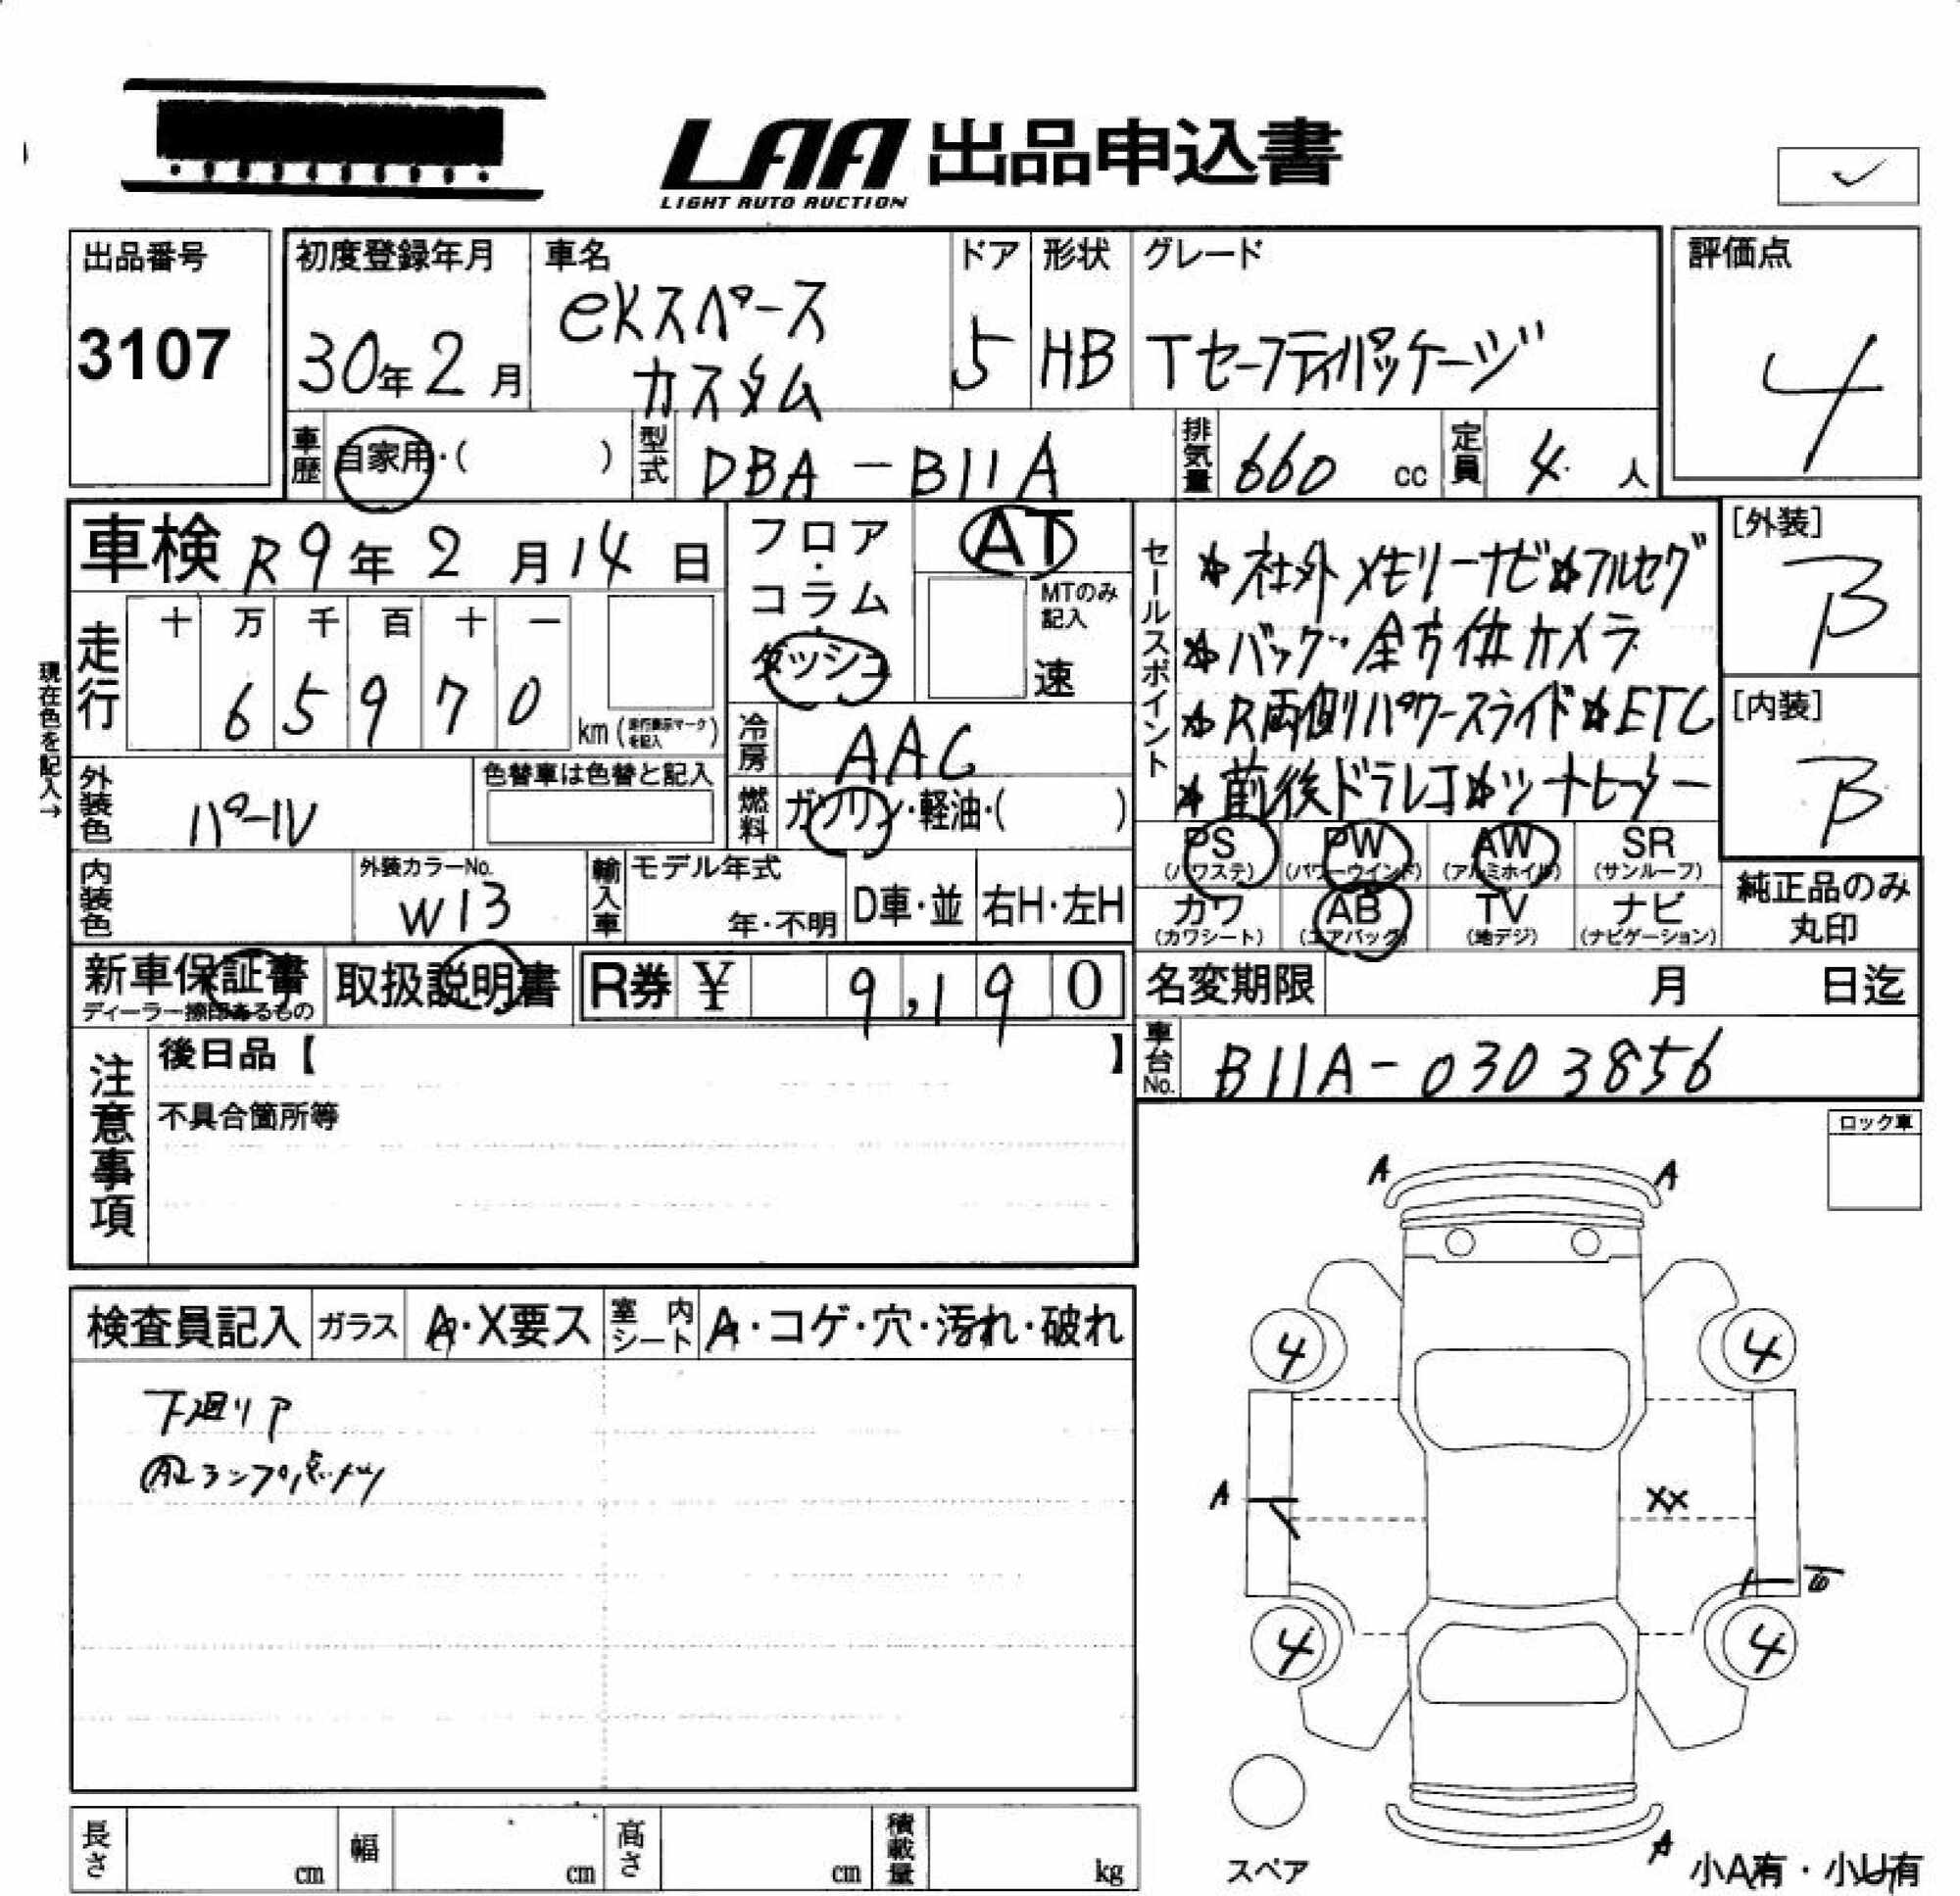 LAA 出品申込書
LIGHT AUTO AUCTION
出品番号
3107
初度登録年月
30年2月
車名
eKスペース
カスタム
ドア
5
形状
HB
グレード
Tセーフティパッケージ
評価点
4
車歴
自家用・( )
型式
DBA-B11A
排気量
660 cc
定員
4 人
車検 R9年2月14日
フロア・コラム・ダッシュ
AT
MTのみ記入
速
走行
十 万 千 百 十 一
6 5 9 7 0
km
現在色を記入→
冷房
AAC
外装色
パール
色替車は色替と記入
燃料
ガソリン・軽油・( )
内装色
外装カラーNo.
W13
輸入車
モデル年式
年・不明
D車・並
右H・左H
セールスポイント
☆社外メモリーナビ☆フルセグ
☆バック・全方位カメラ
☆R両側パワースライド☆ETC
☆前後ドラレコ☆シートヒーター
[外装]
B
[内装]
B
PS (パワステ)
PW (パワーウインド)
AW (アルミホイル)
SR (サンルーフ)
カワ (カワシート)
AB (エアバッグ)
TV (地デジ)
ナビ (ナビゲーション)
純正品のみ
丸印
新車保証書
取扱説明書
R券 ¥ 9,190
名変期限 月 日迄
車台No.
B11A-0303856
注意事項
後日品【 】
不具合箇所等
ロック車
検査員記入
ガラス
A・X要ス
室内シート
A・コゲ・穴・汚れ・破れ
下廻りP
A
A
4
4
A
XX
4
4
スペア
A
小A有・小U有
長さ cm
幅 cm
高さ cm
積載量 kg